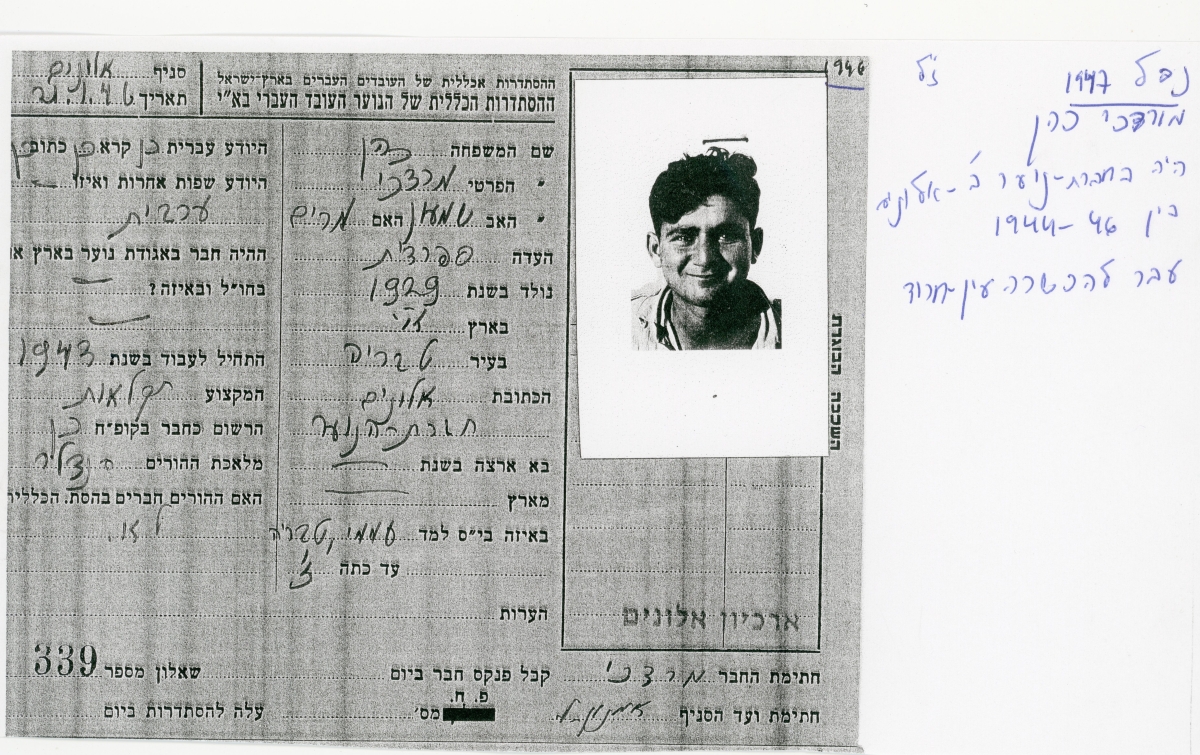 ההסתדרות הכללית של העובדים העברים בארץ-ישראל
ההסתדרות הכללית של הנוער העובד העברי בא"י
סניף אלונים
תאריך 21.1.46
1946
שם המשפחה כהן
" הפרטי מרדכי
" האב שמעון האם מרים
העדה ספרדית
נולד בשנת 1929
בארץ א"י
בעיר טבריה
הכתובת אלונים
חברת הנוער
בא ארצה בשנת
מארץ
באיזה בי"ס למד עממי, טבריה
עד כתה ז'
הערות
היודע עברית כן קרא כן כתוב כן
היודע שפות אחרות ואיזו
ערבית
ההיה חבר באגודת נוער בארץ או
בחו"ל ובאיזה?
התחיל לעבוד בשנת 1943
המקצוע חקלאות
הרשום כחבר בקופ"ח כן
מלאכת ההורים
האם ההורים חברים בהסת. הכללית
לא.
השכבה הבוגרת
ארכיון אלונים
חתימת החבר מרדכי
קבל פנקס חבר ביום
שאלון מספר 339
חתימת ועד הסניף
פ. ח.
מס'
עלה להסתדרות ביום
ז"ל
נפל 1947
מורדכי כהן
היה בחברת-נוער ב'-אלונים
בין 1944-46
עבר להכשרה עין-חרוד